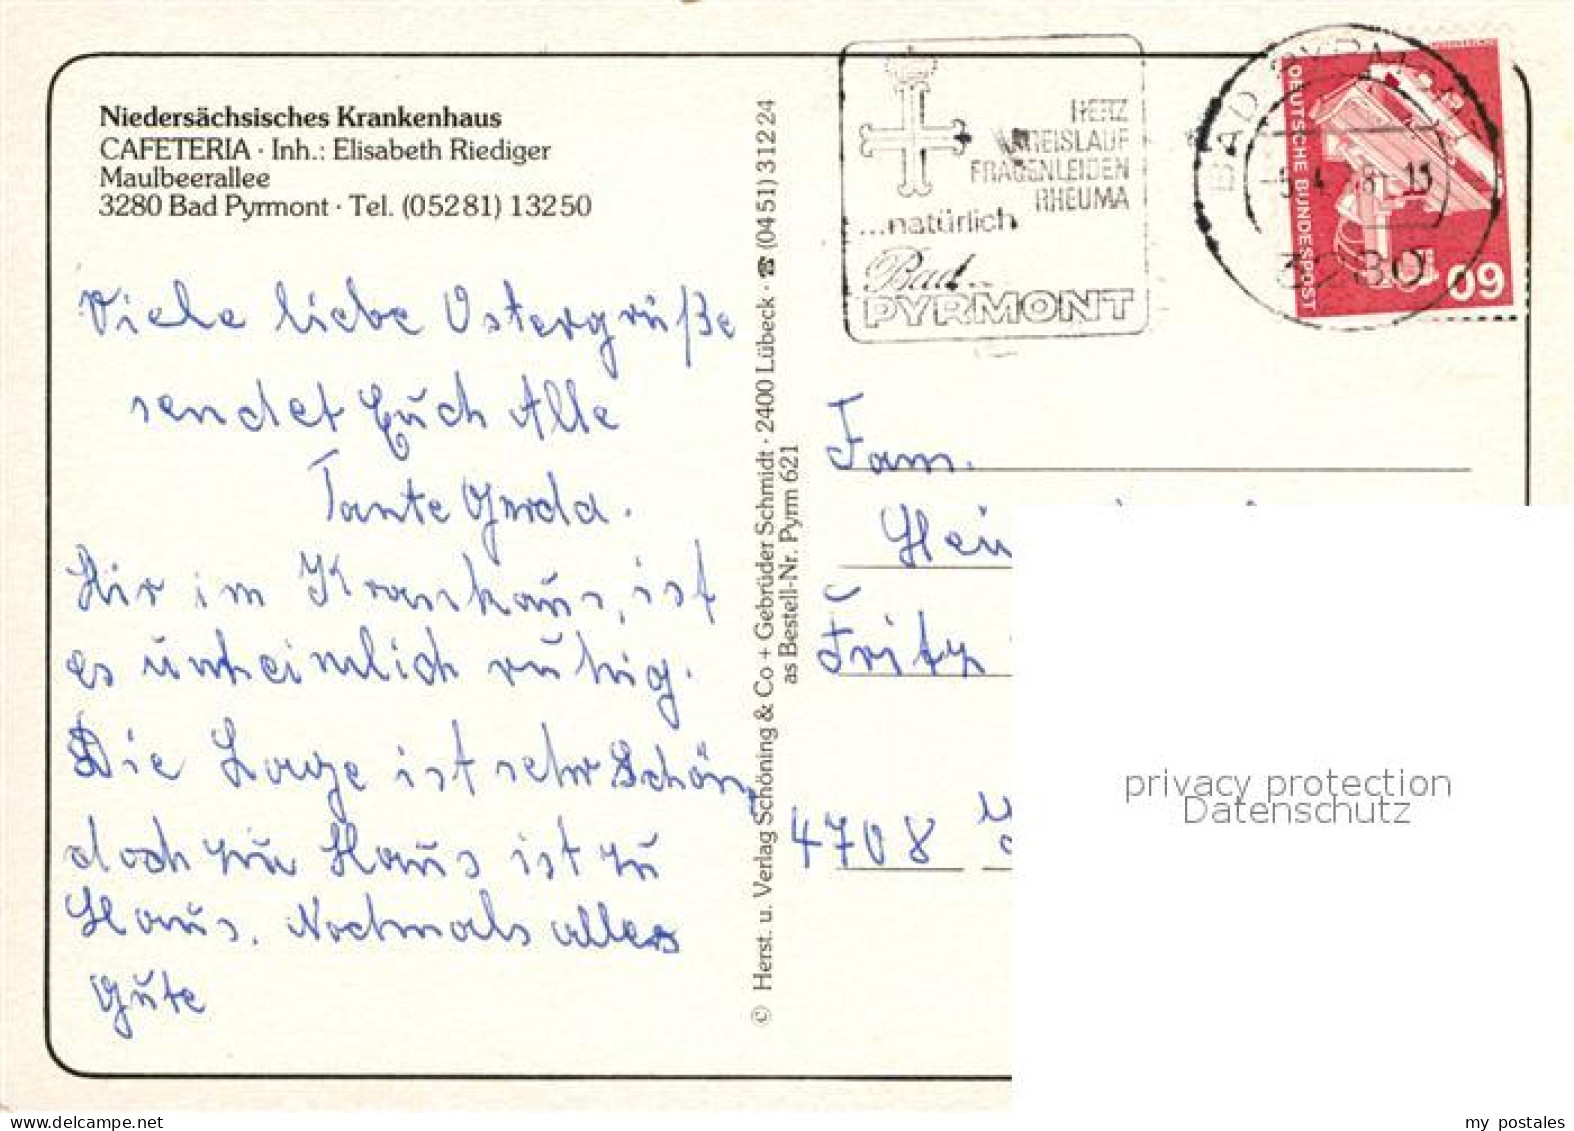 Niedersächsisches Krankenhaus
CAFETERIA · Inh.: Elisabeth Riediger
Maulbeerallee
3280 Bad Pyrmont · Tel. (05281) 13250
Viele liebe Ostergrüße
sendet Euch Alle
Tante Gerda.
Hir im Krankaus, ist
es unheimlich ruhig.
Die Lage ist sehr Schön,
doch zu Haus ist zu
Haus. Nochmals alles
gute
© Herst. u. Verlag Schöning & Co + Gebrüder Schmidt · 2400 Lübeck · ☎ (0451) 31224
as Bestell-Nr. Pyrm 621
HERZ
KREISLAUF
FRAUENLEIDEN
RHEUMA
...natürlich
Bad
PYRMONT
BAD PYRMONT
3280
DEUTSCHE BUNDESPOST
60
Fam.
Fritz
4708
privacy protection
Datenschutz
www.delcampe.net
my_postales